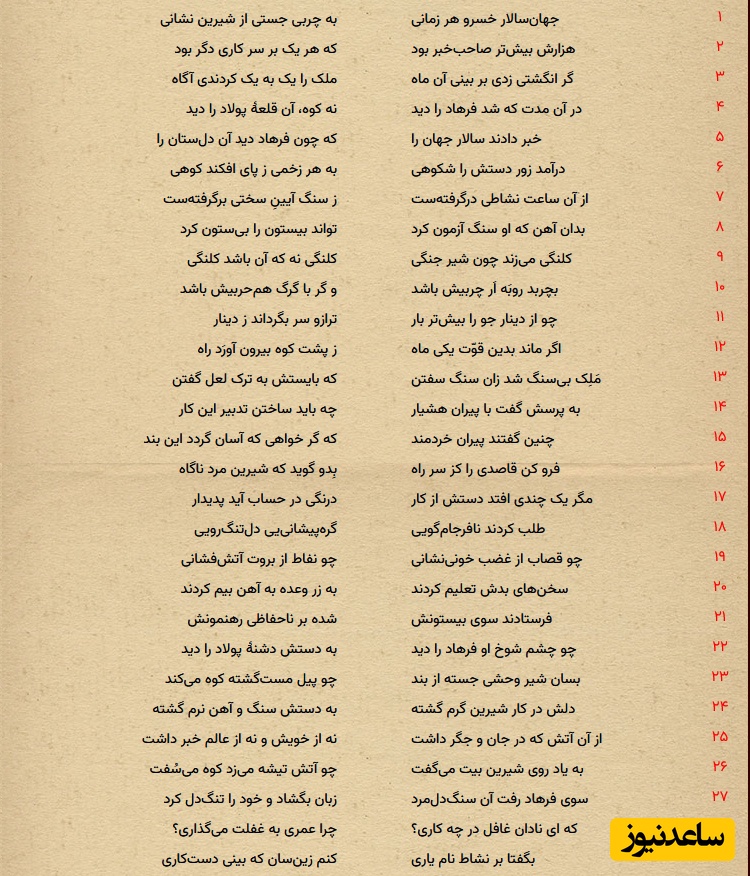 ۱ جهان‌سالار خسرو هر زمانی به چربی جستی از شیرین نشانی
۲ هزارش بیش‌تر صاحب‌خبر بود که هر یک بر سر کاری دگر بود
۳ گر انگشتی زدی بر بینی آن ماه ملک را یک به یک کردندی آگاه
۴ در آن مدت که شد فرهاد را دید نه کوه، آن قلعهٔ پولاد را دید
۵ خبر دادند سالار جهان را که چون فرهاد دید آن دل‌ستان را
۶ درآمد زور دستش را شکوهی به هر زخمی ز پای افکند کوهی
۷ از آن ساعت نشاطی درگرفته‌ست ز سنگ آیینِ سختی برگرفته‌ست
۸ بدان آهن که او سنگ آزمون کرد تواند بیستون را بی‌ستون کرد
۹ کلنگی می‌زند چون شیر جنگی کلنگی نه که آن باشد کلنگی
۱۰ بچربد روبَه اَر چربیش باشد و گر با گرگ هم‌حربیش باشد
۱۱ چو از دینار جو را بیش‌تر بار ترازو سر بگرداند ز دینار
۱۲ اگر ماند بدین قوّت یکی ماه ز پشت کوه بیرون آوَرَد راه
۱۳ مَلِک بی‌سنگ شد زان سنگ سفتن که بایستش به ترک لعل گفتن
۱۴ به پرسش گفت با پیران هشیار چه باید ساختن تدبیر این کار
۱۵ چنین گفتند پیران خردمند که گر خواهی که آسان گردد این بند
۱۶ فرو کن قاصدی را کز سر راه بِدو گوید که شیرین مرد ناگاه
۱۷ مگر یک چندی افتد دستش از کار درنگی در حساب آید پدیدار
۱۸ طلب کردند نافرجام‌گویی گره‌پیشانی‌یی دل‌تنگ‌رویی
۱۹ چو قصاب از غضب خونی‌نشانی چو نفاط از بروت آتش‌فشانی
۲۰ سخن‌های بدش تعلیم کردند به زر وعده به آهن بیم کردند
۲۱ فرستادند سوی بیستونش شده بر ناحفاظی رهنمونش
۲۲ چو چشم شوخ او فرهاد را دید به دستش دشنهٔ پولاد را دید
۲۳ بسان شیر وحشی جسته از بند چو پیل مست‌گشته کوه می‌کند
۲۴ دلش در کار شیرین گرم گشته به دستش سنگ و آهن نرم گشته
۲۵ از آن آتش که در جان و جگر داشت نه از خویش و نه از عالم خبر داشت
۲۶ به یاد روی شیرین بیت می‌گفت چو آتش تیشه می‌زد کوه می‌سُفت
۲۷ سوی فرهاد رفت آن سنگ‌دل‌مرد زبان بگشاد و خود را تنگ‌دل کرد
که ای نادان غافل در چه کاری؟ چرا عمری به غفلت می‌گذاری؟
بگفتا بر نشاط نام یاری کنم زین‌سان که بینی دست‌کاری
ساعدنیوز